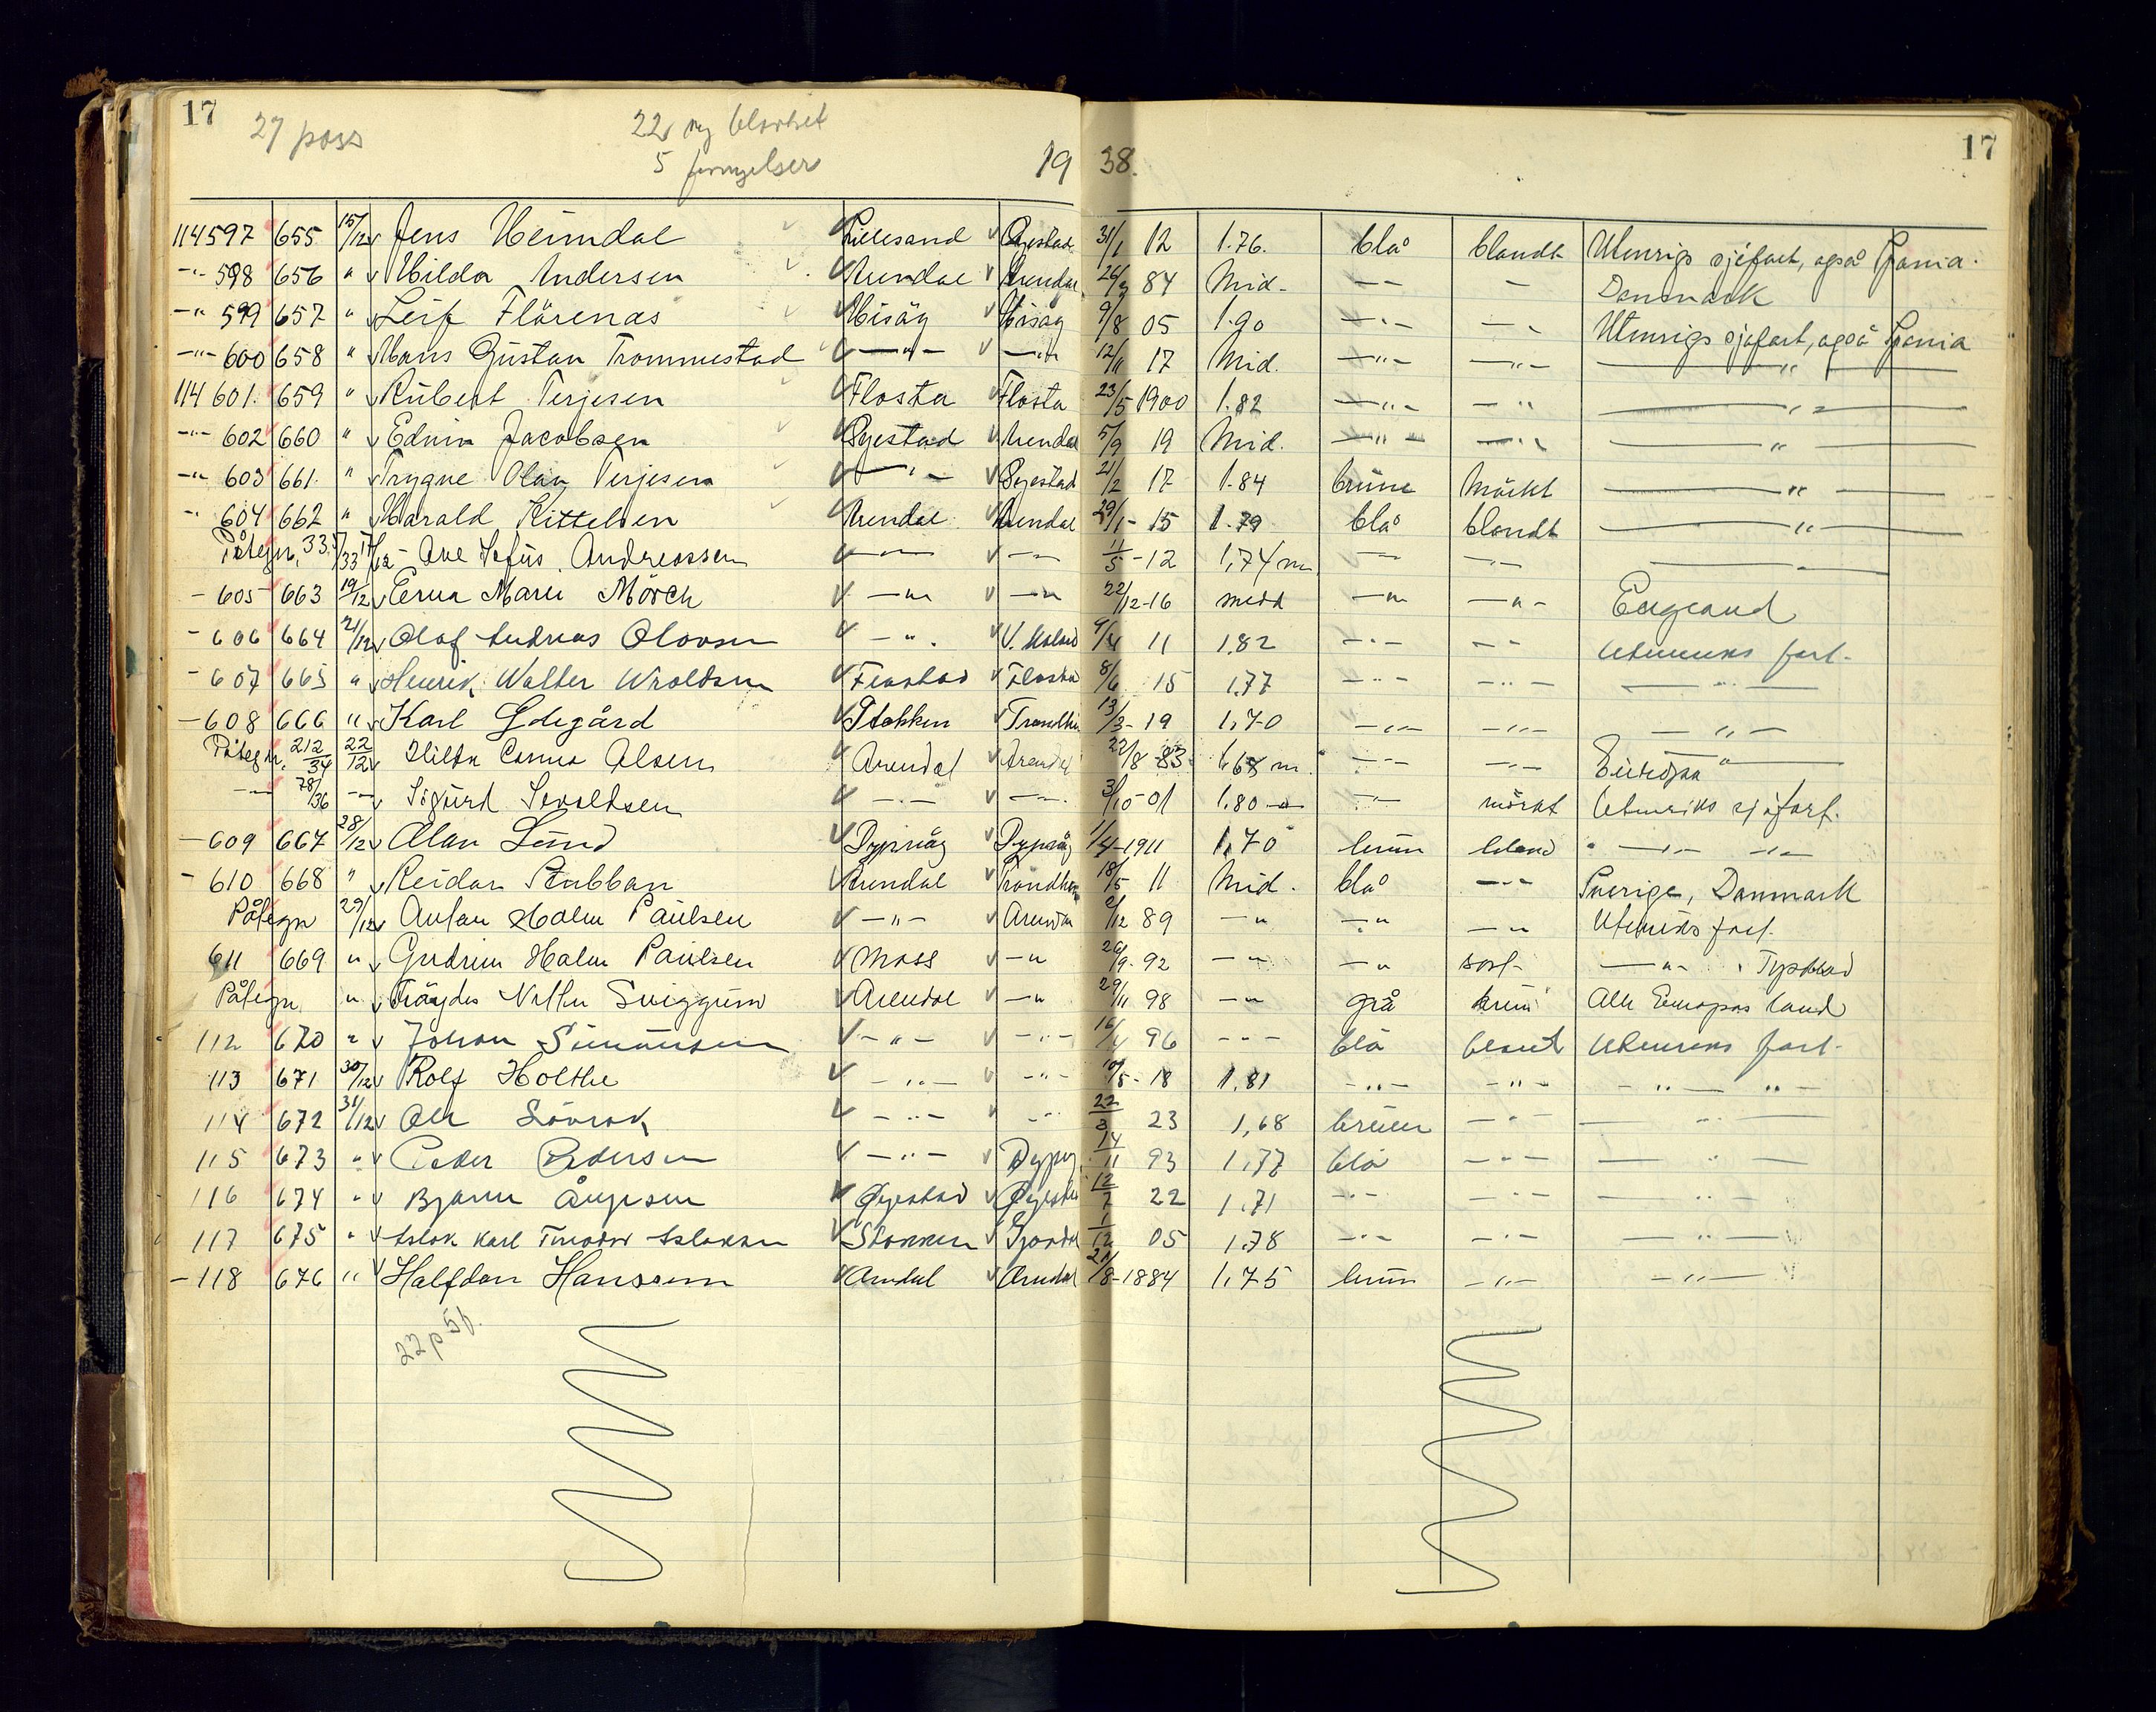 17 17
27 pass 22 ny blankett
5 fornyelser
19 38.
114597 655 15/12 Jens Heimdal Lillesand Øyestad 31/1 12 1.76. blå blandt Utenrigs sjøfart, også Spania.
-"- 598 656 " Hilda Andersen Arendal Arendal 84 Mid. — — Danmark
-"- 599 657 " Leif Flørenas Hisøy Hisøy 9/8 05 1.90 —"— —"— Utenrigs sjøfart, også Spania
-"- 600 658 " Hans Gustav Trommestad —"— —"— 12/11 17 Mid. —"— —"— —"—
114 601. 659 " Robert Terjesen Flosta Flosta 23/5 1900 1.82 —"— —"— —"—
-"- 602 660 " Edvin Jacobsen Øyestad Arendal 5/9 19 Mid. —"— —"— —"—
-"- 603 661. " Trygve Olav Terjesen —"— Øyestad 21/2 17 1.84 brune mørkt —"—
-"- 604 662 " Harald Kittelsen Arendal Arendal 29/1 - 15 1.79 blå blandt —"—
Påtegn. 33 17/12 - Ove Andreassen —"— —"— 11/5 - 12 1,74 m —"— —"— —"—
- 605 663 19/12 Erna Marie Mörch —"— —"— 22/12-16 midd —"— —"— England
- 606 664 21/12 Olaf Andreas Olavsen —"— 11 1.82 —"— —"— Utenriks fart.
- 607 665 " Henrik Walter Wroldsen Flostad Flosta 8/6 15 1.77 —"— —"— —"—
- 608 666 " Karl Ødegård Stokken 13/3 - 19 1,70 —"— —"— —"—
Påtegn. 212/34 22/12 Hilda Olsen Arendal Arendal 22/8 83 1,68 m. —"— —"— Europa
—"— 78/36 —"— Sigurd —"— —"— 3/10-01 1.80 —"— —"— mörkt Utenriks sjøfart.
- 609 667 28/12 Alan Lund Dypvåg Dypvåg 1/4-1911 1,70 brun bland —"— —"—
- 610 668 " Reidar Stubban Arendal Trondheim 18/5 11 Mid. blå —"— Sverige, Danmark
Påtegn 29/12 Anton Holm Paulsen —"— Arendal 2/12 89 —"— —"— —"— Utenriks fart.
611 669 " Gudrun Holm Paulsen Moss —"— 26/9-92 —"— —"— sort —"— Tyskland
Påtegn " Arendal —"— 29/11 98 —"— grå brun Alle Europas land
112 670 " Johan Simonsen —"— —"— 16/4 96 —"— blå blond Utenriks fart.
113 671 30/12 Rolf Holthe —"— —"— 10/5-18 1.81 —"— —"— —"— —"—
114 672 31/12 Ole —"— —"— 22/3 23 1,68 brun —"— —"—
115 673 " Peder Pedersen —"— 14/11 93 1,77 blå —"— —"—
116 674 " Bjarne Øyestad Øyestad 12/7 22 1,71 —"— —"— —"—
117 675 " Aslak Karl Teodor Aslaksen Stokken 1/12 05 1.78 —"— —"— —"—
- 118 676 " Halfdan Hanssen Arendal Arendal 21/8-1884 1,75 brun —"— —"—
22 p 5 f.